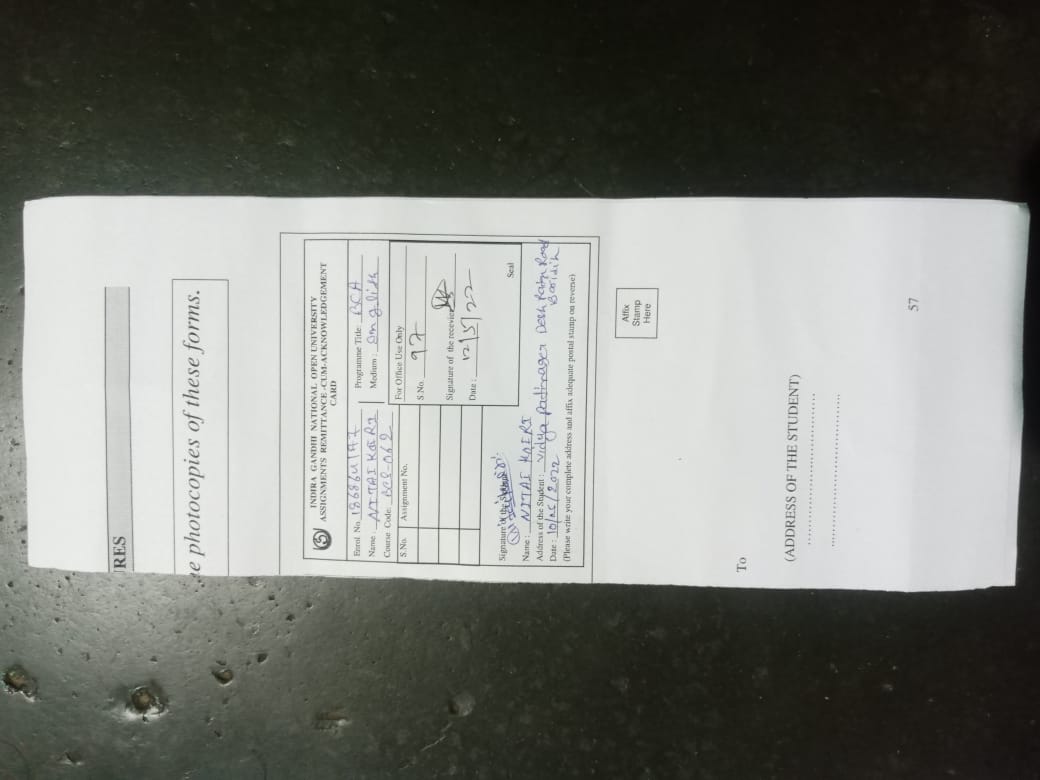 RES
e photocopies of these forms.
INDIRA GANDHI NATIONAL OPEN UNIVERSITY
ASSIGNMENTS REMITTANCE -CUM-ACKNOWLEDGEMENT
CARD
Enrol. No. Programme Title: BCA
Name: NITAI KOERI Medium: English
Course Code: BCS-062
For Office Use Only
S.No. Assignment No.
S.No. 97
Signature of the receiver
Date: 12/5/22
Seal
Signature of the Student:
Name: NITAI KOERI
Address of the Student: Vidya Patinagar Road
Baridih
Date: 10/05/2022
(Please write your complete address and affix adequate postal stamp on reverse)
Affix
Stamp
Here
To
(ADDRESS OF THE STUDENT)
57